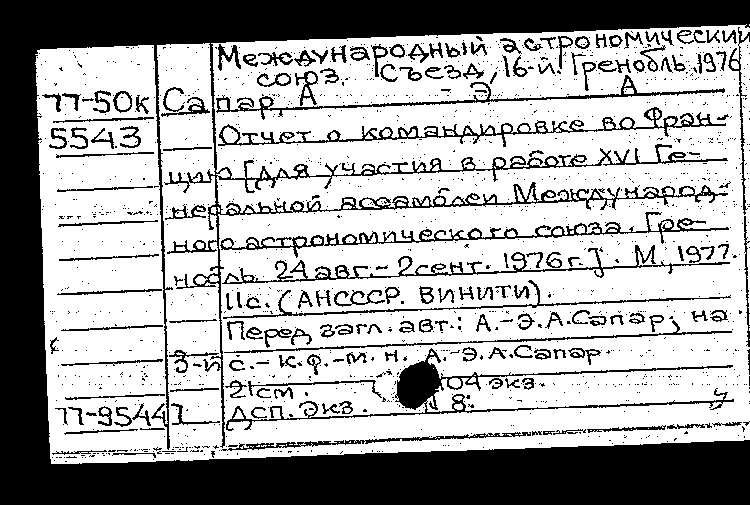 Международный астрономический
союз. Съезд, 16-й. Гренобль, 1976
77-50к Сапар, А - Э А
5543 Отчет о командировке во Фран-
цию [для участия в работе XVI Ге-
неральной ассамблеи Международ-
ного астрономического союза. Гре-
нобль. 24 авг.- 2 сент. 1976 г.]. М., 1977.
11с. (АНСССР. ВИНИТИ).
Перед загл. авт.: А.-Э.А.Сапар; на
3-й с.- к.ф.-м.н. А.-Э.А.Сапар.
21см. 104 экз.
77-95447 ДСП. Экз. 8: